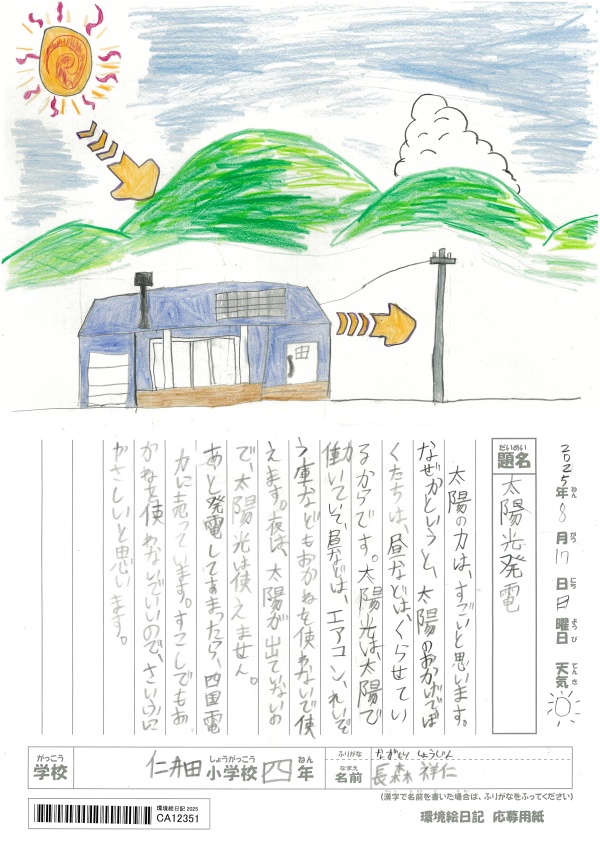 2025年8月17日日曜日 天気
ねん がつ にち ようび てんき
だいめい
題名
太陽光発電
太陽の力は、すごいと思います。
なぜかというと、太陽のおかげでぼ
くたちは、昼などは、くらせてい
るからです。太陽光は、太陽で
働いていて、昼などは、エアコン、れいぞ
う庫などもおかねを使わないで使
えます。夜は、太陽が出ていないの
で、太陽光は使えません。
あと発電してあまったら、四国電
力に売っています。すこしでもお
かねを使わないでいいので、さいふに
やさしいと思います。
がっこう
学校
仁井田小学校 四年
しょうがっこう ねん
ふりがな ながもり しょうじん
なまえ
名前 長森 祥仁
(漢字で名前を書いた場合は、ふりがなをふってください)
環境絵日記2025
CA12351
環境絵日記 応募用紙